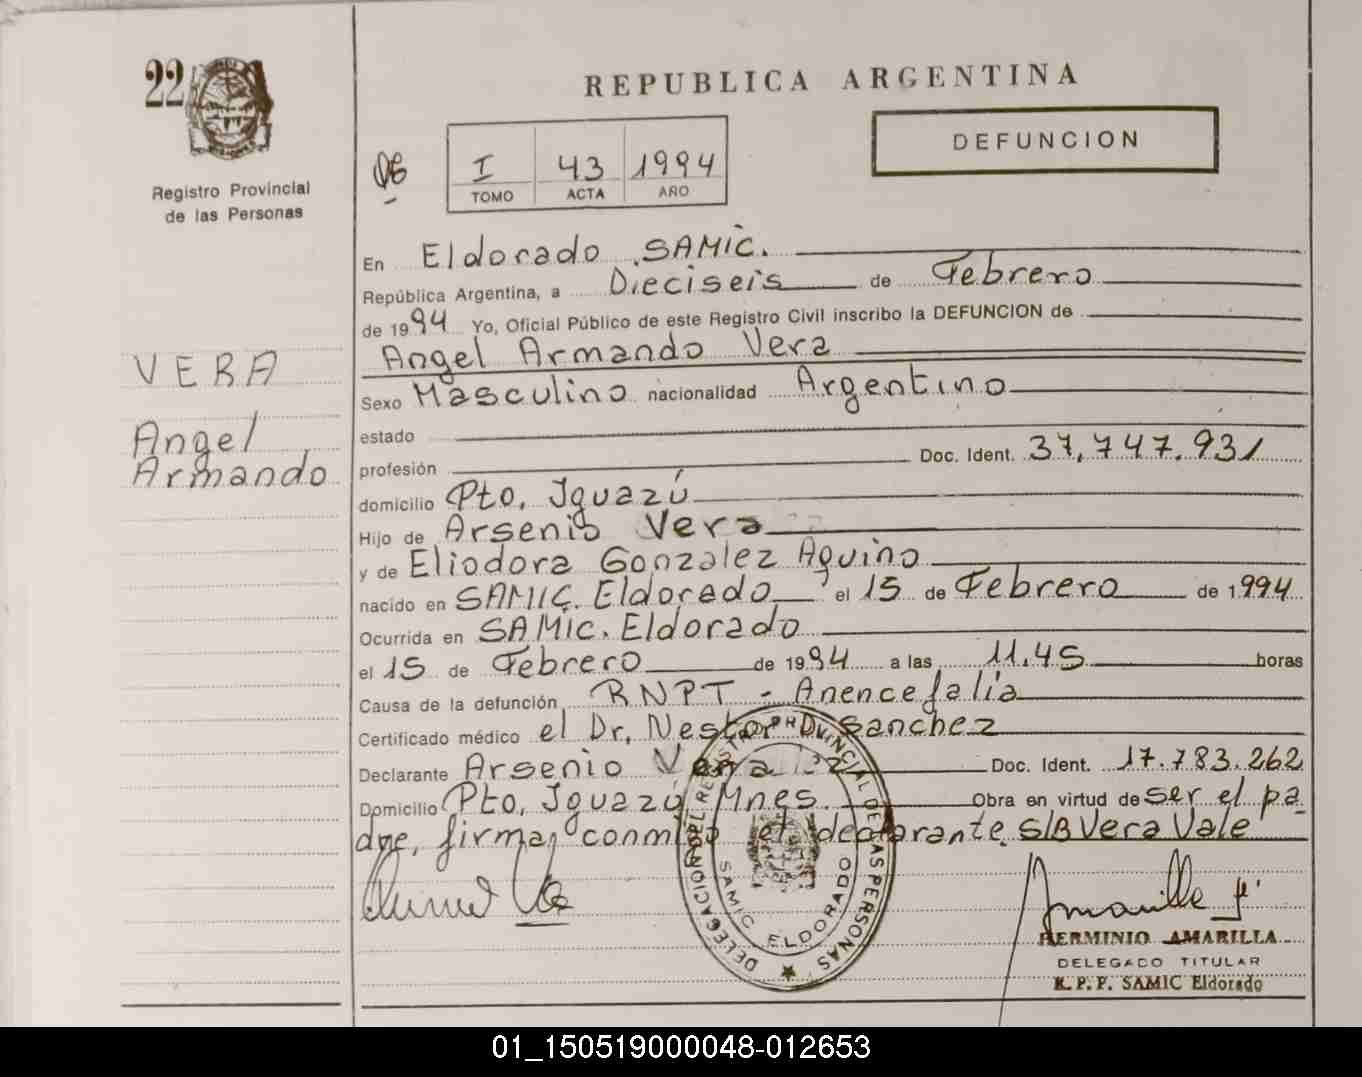 22
Registro Provincial
de las Personas
VERA
Angel
Armando
REPUBLICA ARGENTINA
DEFUNCION
I 43 1994
TOMO ACTA AÑO
En Eldorado SAMIC.
República Argentina, a Dieciseis de Febrero
de 1994 Yo, Oficial Público de este Registro Civil inscribo la DEFUNCION de
Angel Armando Vera
Sexo Masculino nacionalidad Argentino
estado
profesión Doc. Ident. 37.747.931
domicilio Pto. Iguazú
Hijo de Arsenio Vera
y de Eliodora Gonzalez Aquino
nacido en SAMIC. Eldorado el 15 de Febrero de 1994
Ocurrida en SAMIC. Eldorado
el 15 de Febrero de 1994 a las 11.45 horas
Causa de la defunción RNPT - Anencefalia
Certificado médico el Dr. Nestor D. Sanchez
Declarante Arsenio Vera Doc. Ident. 17.783.262
Domicilio Pto. Iguazú Mnes. Obra en virtud de ser el pa
dre, firma conmigo el declarante. S/B Vera Vale
DELEGACION DEL REGISTRO PROVINCIAL DE LAS PERSONAS
SAMIC ELDORADO
HERMINIO AMARILLA
DELEGADO TITULAR
R. P. P. SAMIC Eldorado
01_150519000048-012653